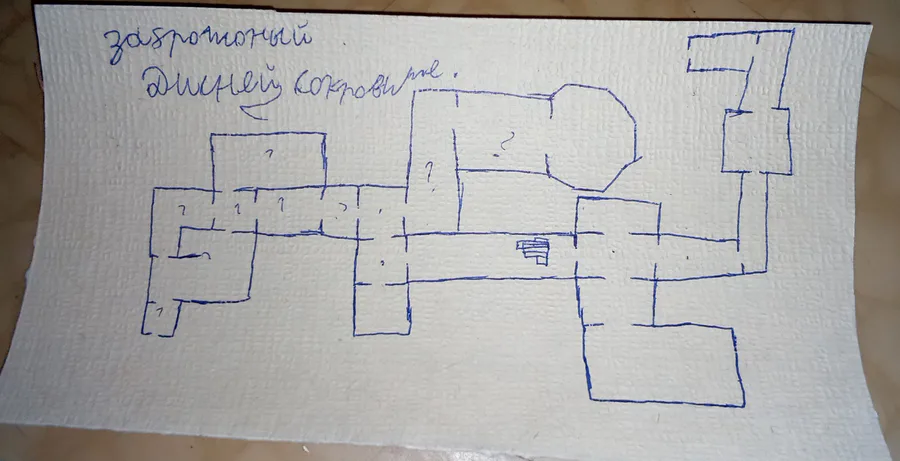 заброжоный
Дисней сокровище.
? ? ?
? ? ? ?
?
?